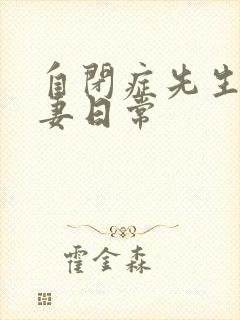 自閉症先生
妻日常
霍金森